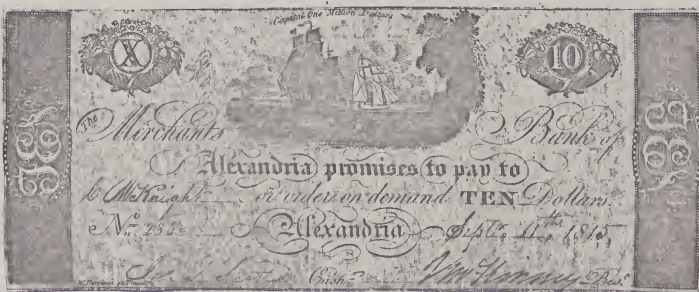 Capital One Million Dollars
X
10
The Merchants Bank of
Alexandria promises to pay to
C McKnight or order on demand TEN Dollars
No. Alexandria Septr. 11th 1815
Cashr. Prest.
W. Harrison
TEN
TEN